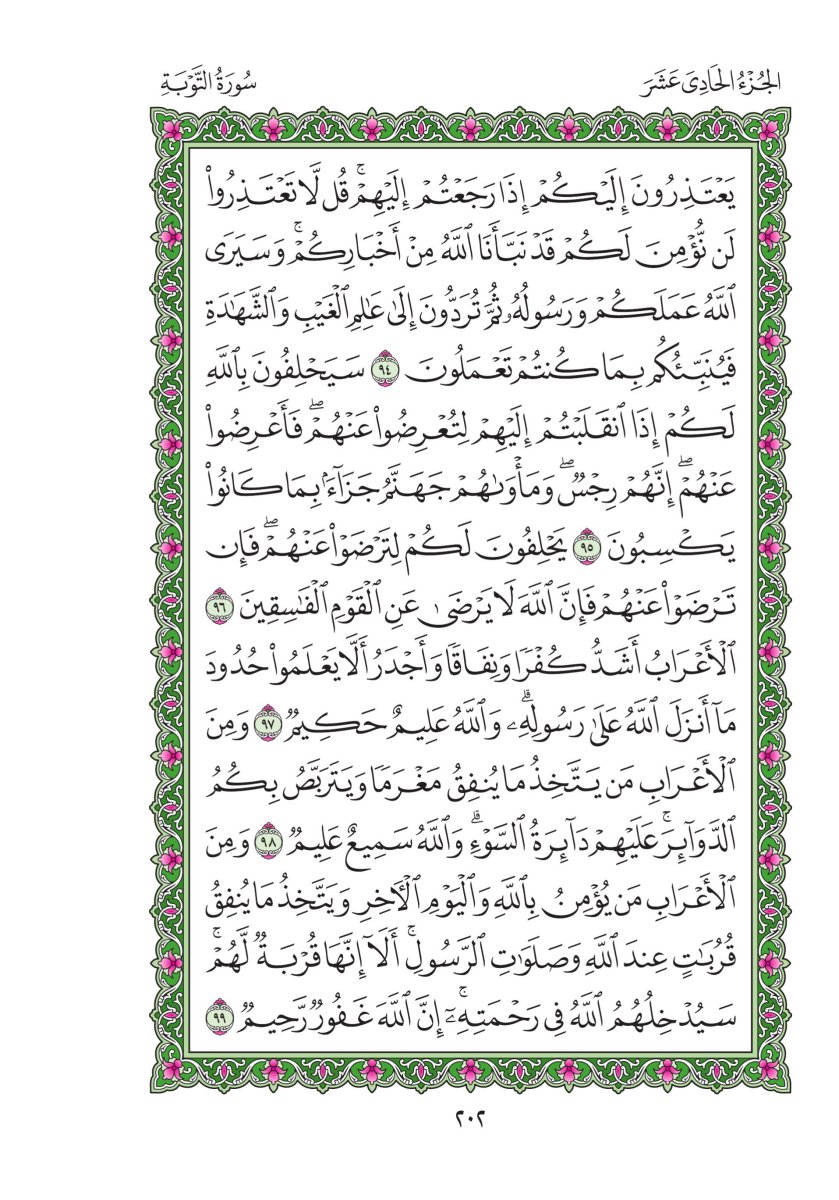 الجُزْءُ الحَادِى عَشَرَ
سُورَةُ التَّوْبَةِ
يَعْتَذِرُونَ إِلَيْكُمْ إِذَا رَجَعْتُمْ إِلَيْهِمْۚ قُل لَّا تَعْتَذِرُوا۟
لَن نُّؤْمِنَ لَكُمْ قَدْ نَبَّأَنَا ٱللَّهُ مِنْ أَخْبَارِكُمْۚ وَسَيَرَى
ٱللَّهُ عَمَلَكُمْ وَرَسُولُهُۥ ثُمَّ تُرَدُّونَ إِلَىٰ عَٰلِمِ ٱلْغَيْبِ وَٱلشَّهَٰدَةِ
فَيُنَبِّئُكُم بِمَا كُنتُمْ تَعْمَلُونَ ٩٤ سَيَحْلِفُونَ بِٱللَّهِ
لَكُمْ إِذَا ٱنقَلَبْتُمْ إِلَيْهِمْ لِتُعْرِضُوا۟ عَنْهُمْۖ فَأَعْرِضُوا۟
عَنْهُمْۖ إِنَّهُمْ رِجْسٌۖ وَمَأْوَىٰهُمْ جَهَنَّمُ جَزَآءًۢ بِمَا كَانُوا۟
يَكْسِبُونَ ٩٥ يَحْلِفُونَ لَكُمْ لِتَرْضَوْا۟ عَنْهُمْۖ فَإِن
تَرْضَوْا۟ عَنْهُمْ فَإِنَّ ٱللَّهَ لَا يَرْضَىٰ عَنِ ٱلْقَوْمِ ٱلْفَٰسِقِينَ ٩٦
ٱلْأَعْرَابُ أَشَدُّ كُفْرًا وَنِفَاقًا وَأَجْدَرُ أَلَّا يَعْلَمُوا۟ حُدُودَ
مَآ أَنزَلَ ٱللَّهُ عَلَىٰ رَسُولِهِۦۗ وَٱللَّهُ عَلِيمٌ حَكِيمٌ ٩٧ وَمِنَ
ٱلْأَعْرَابِ مَن يَتَّخِذُ مَا يُنفِقُ مَغْرَمًا وَيَتَرَبَّصُ بِكُمُ
ٱلدَّوَآئِرَۚ عَلَيْهِمْ دَآئِرَةُ ٱلسَّوْءِۗ وَٱللَّهُ سَمِيعٌ عَلِيمٌ ٩٨ وَمِنَ
ٱلْأَعْرَابِ مَن يُؤْمِنُ بِٱللَّهِ وَٱلْيَوْمِ ٱلْءَاخِرِ وَيَتَّخِذُ مَا يُنفِقُ
قُرُبَٰتٍ عِندَ ٱللَّهِ وَصَلَوَٰتِ ٱلرَّسُولِۚ أَلَآ إِنَّهَا قُرْبَةٌ لَّهُمْۚ
سَيُدْخِلُهُمُ ٱللَّهُ فِى رَحْمَتِهِۦٓۚ إِنَّ ٱللَّهَ غَفُورٌ رَّحِيمٌ ٩٩
٢٠٢